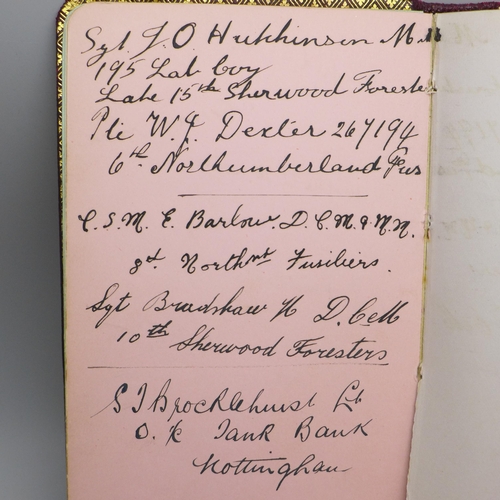 Sgt J. O Hutchinson M.M
195 Lab Coy
Late 15th Sherwood Forester
Pte W. J. Dexter 267194
6th Northumberland Fus
C. S. M. E. Barlow. D. C. M. & M.M.
3rd Northmt Fusiliers.
Sgt Bradshaw H D. C M
10th Sherwood Foresters
S J Brocklehurst Lt
O. i/c Tank Bank
Nottingham